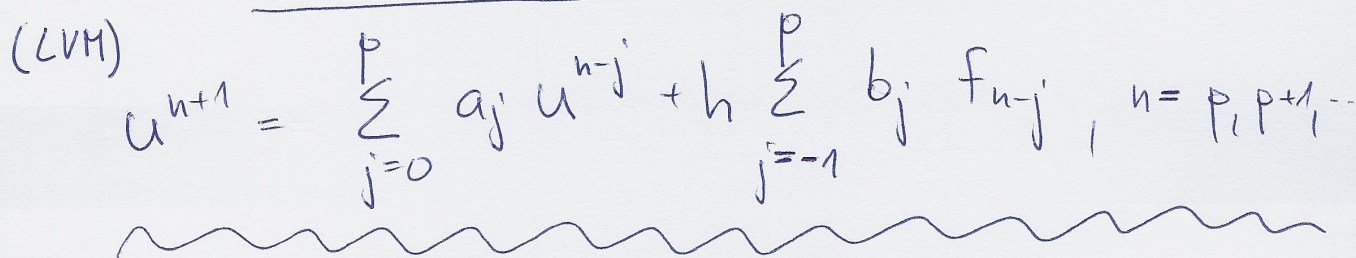 (LVM)
u^{n+1} = \sum_{j=0}^{p} a_j u^{n-j} + h \sum_{j=-1}^{p} b_j f_{n-j} , n = p, p+1, ...